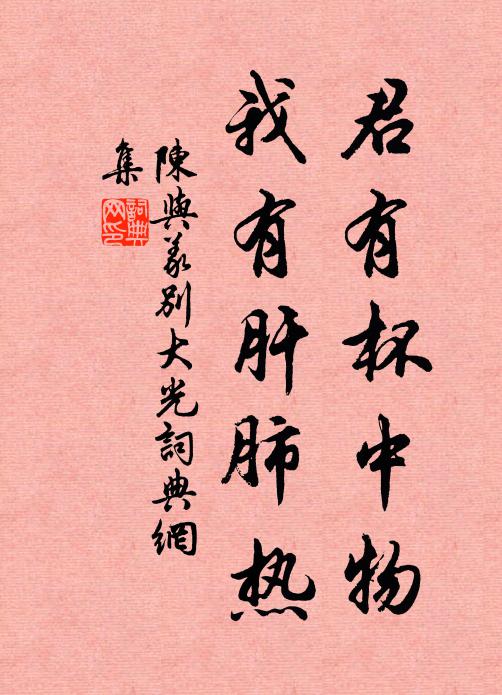 君有杯中物
我有肝肺热
陳與义別大光詞典網
集
詞典网印